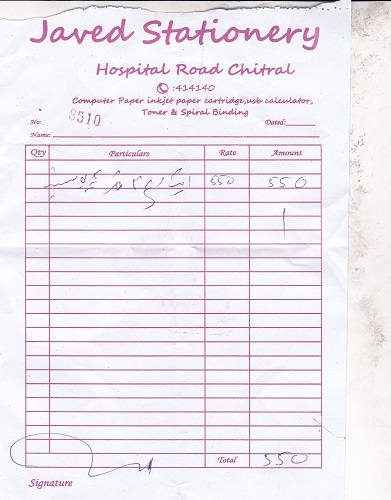 Javed Stationery
Hospital Road Chitral
:414140
Computer Paper inkjet paper cartridge,usb calculator,
Toner & Spiral Binding
No: 8510 Dated:
Name:
Qty Particulars Rate Amount
550 550
Total 550
Signature